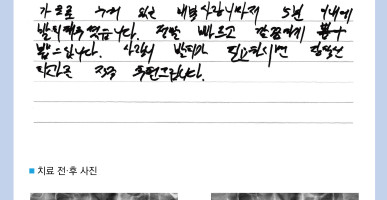 가로로 누워 있는 매복사랑니까지 5분 이내에
발치해주셨습니다. 정말 빠르고 깔끔하게 뽑
사랑니 발치가 필요하시면
치과를 적극 추천드립니다.
■ 치료 전·후 사진